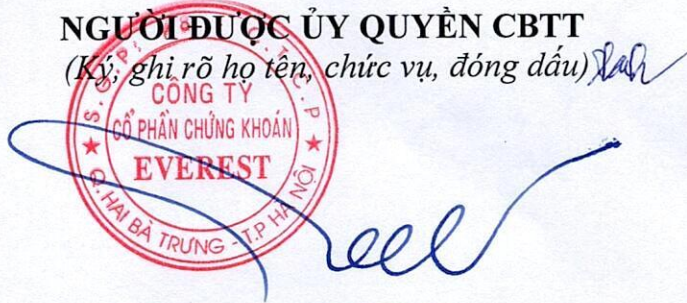 NGƯỜI ĐƯỢC ỦY QUYỀN CBTT
(Ký, ghi rõ họ tên, chức vụ, đóng dấu)
CÔNG TY
CỔ PHẦN CHỨNG KHOÁN
EVEREST
Q. HAI BÀ TRƯNG - T.P HÀ NỘI